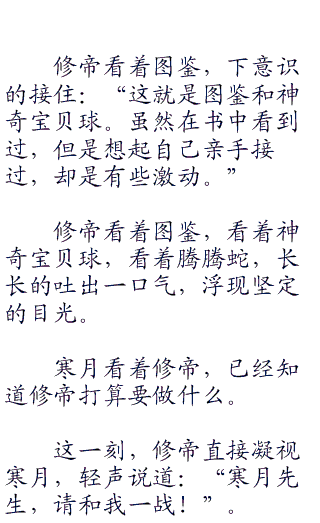 修帝看着图鉴，下意识
的接住：“这就是图鉴和神
奇宝贝球。虽然在书中看到
过，但是想起自己亲手接
过，却是有些激动。”
修帝看着图鉴，看着神
奇宝贝球，看着腾腾蛇，长
长的吐出一口气，浮现坚定
的目光。
寒月看着修帝，已经知
道修帝打算要做什么。
这一刻，修帝直接凝视
寒月，轻声说道：“寒月先
生，请和我一战！”。